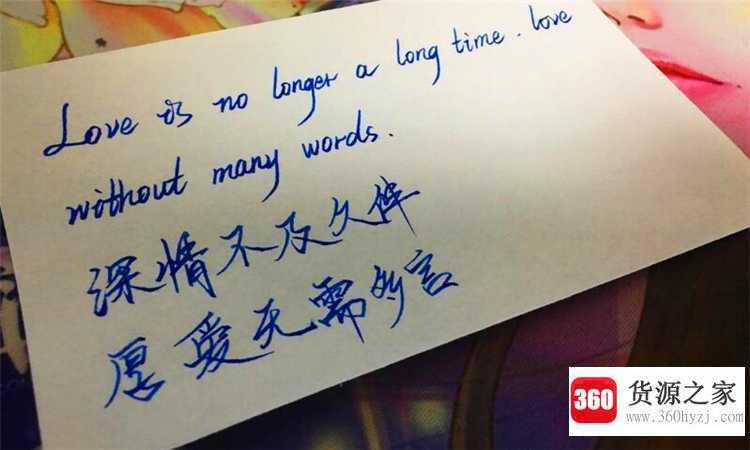 Love is no longer a long time. love
without many words.
深情不及久伴
厚爱无需多言
360 货源之家
www.360hyzj.com